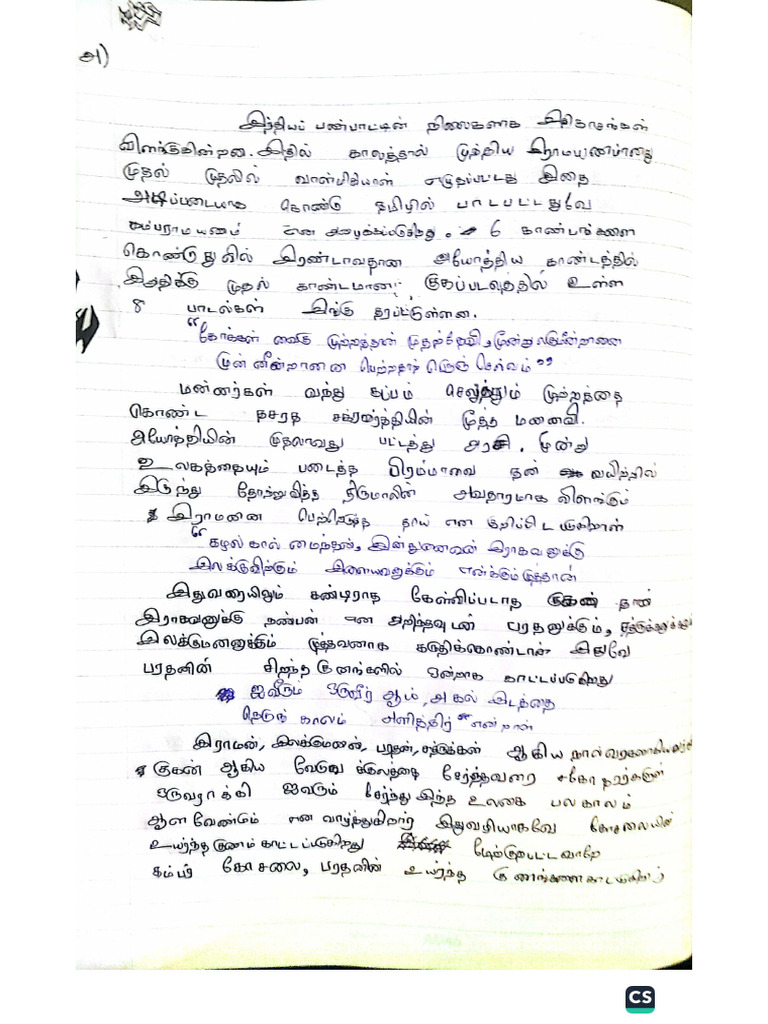 அ)
இந்தியப் பண்பாட்டின் நிலைகளாக இதிகாசங்கள்
விளங்குகின்றன. இதில் காலத்தால் முந்திய இராமயணமானது
முதல் முதலில் வால்மிகியால் எழுதப்பட்டது இதை
அடிப்படையாக கொண்டு தமிழில் பாடபட்டதுவே
கம்பராமயணம் என அழைக்கப்படுகிறது. 6 காண்டங்களை
கொண்டதுவில் இரண்டாவதான அயோத்திய காண்டத்தில்
முதல் காண்டமான குகப்படலத்தில் உள்ள
8 பாடல்கள் இங்கு தரப்பட்டுள்ளன.
"கோக்கள் வைகு முற்றத்தாள் முதற்தேவி, மூன்றுலகுமீன்றானை
முன் னீன்றானை பெற்றதால் பெருஞ் செல்வம்"
மன்னர்கள் வந்து கப்பம் செலுத்தும் முற்றத்தை
கொண்ட தசரத சக்ரவர்த்தியின் மூத்த மனைவி.
அயோத்தியின் முதலாவது பட்டத்து அரசி. மூன்று
உலகத்தையும் படைத்த பிரம்மாவை தன் வயிற்றில்
இருந்து தோற்றுவித்த திருமாலின் அவதாரமாக விளங்கும்
இராமனை பெற்றெடுத்த தாய் என குறிப்பிடபடுகிறாள்
"கழல் கால் மைந்தன், இன்துணைவன் இராகவனுக்கு
இலக்குவற்கும் இளையவனுக்கும் எனக்கும் மூத்தான்
இதுவரையிலும் கண்டிராத கேள்விப்படாத குகன் தான்
இராகவனுக்கு நண்பன் என அறிந்தவுடன் பரதனுக்கும், சத்ருக்கனுக்கும்
இலக்குமனனுக்கும் மூத்தவனாக கருதிக்கொண்டான் இதுவே
பரதனின் சிறந்த குனங்களில் ஒன்றாக காட்டப்படுகிறது
ஐவீரும் ஒருவீர் ஆய், அகல் இடத்தை
நெடுங் காலம் அளித்திர்" என்றான்
இராமன், இலக்குமனன், பரதன், சத்ருக்கன் ஆகிய நால்வர்களாகிய
குகன் ஆகிய வேடுவ குலத்தை சேர்த்தவரை சகோதரர்களுள்
ஒருவராக்கி ஐவரும் சேர்ந்து இந்த உலகை பல காலம்
ஆள வேண்டும் என வாழ்த்துகிறார் இதுவழியாகவே கோசலையின்
உயர்ந்த குணம் காட்டப்படுகிறது மேற்கூறபட்டவாறே
கம்பர் கோசலை, பரதனின் உயர்ந்த குணங்களை காட்டுகிறார்
CS